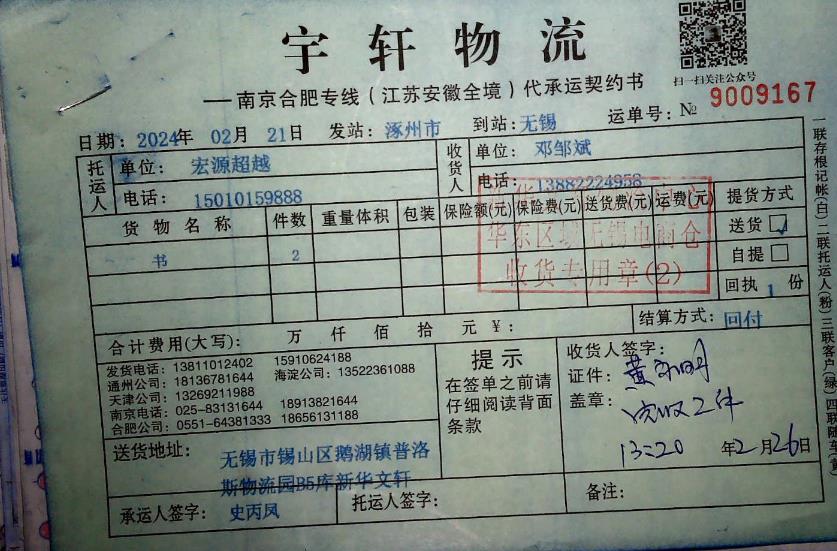 宇轩物流
扫一扫关注公众号
——南京合肥专线（江苏安徽全境）代承运契约书
日期：2024年 02月 21日 发站：涿州市 到站：无锡 运单号：№ 9009167
托运人 单位：宏源超越 收货人 单位：邓邹斌
电话：15010159888 电话：13882224958
货物名称 件数 重量体积 包装 保险额(元) 保险费(元) 送货费(元) 运费(元) 提货方式
书 2 送货
自提
回执 1 份
华东区域无锡电商仓
收货专用章(2)
合计费用(大写)： 万 仟 佰 拾 元 ¥： 结算方式：回付
发货电话：13811012402 15910624188
通州公司：18136781644 海淀公司：13522361088
天津公司：13269211988
南京电话：025-83131644 18913821644
合肥公司：0551-64381333 18656131188
提示
在签单之前请
仔细阅读背面
条款
收货人签字：
证件：
盖章：实收2件
13:20 年2月26日
送货地址：无锡市锡山区鹅湖镇普洛
斯物流园B5库新华文轩
承运人签字：史丙凤 托运人签字： 备注：
一联存根记帐(白) 二联托运人(粉) 三联客户(绿) 四联随车(黄)